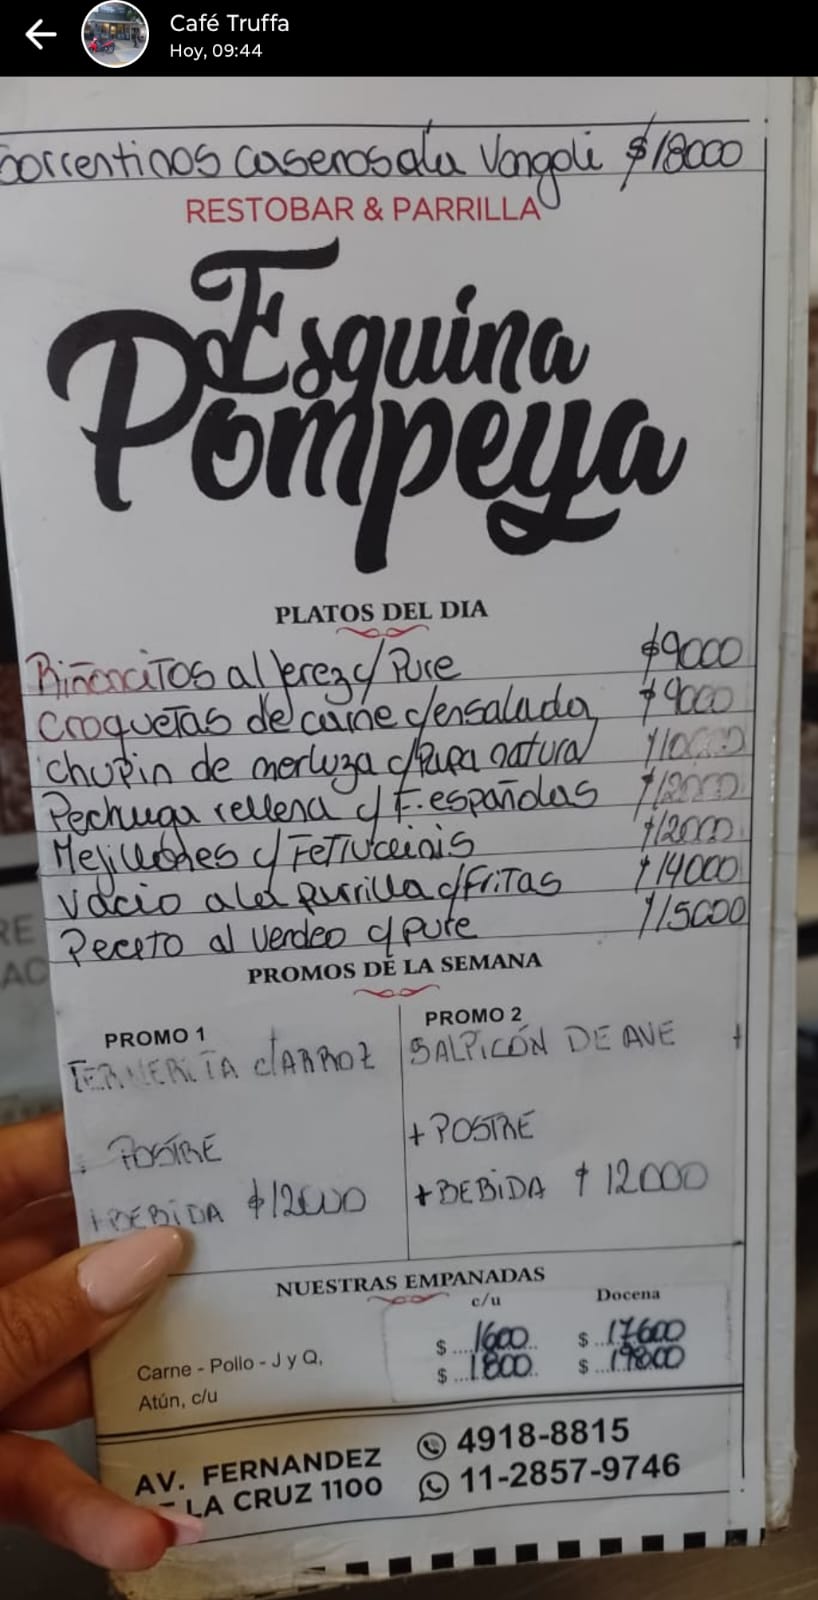 Café Truffa
Hoy, 09:44
Sorrentinos caseros a la Vongoli $18000
RESTOBAR & PARRILLA
Esquina
Pompeya
PLATOS DEL DIA
Riñoncitos al Jerez c/ Pure $9000
Croquetas de carne c/ensalada $9000
Chupin de merluza c/Papa natural $10000
Pechuga rellena c/ F. españolas $12000
Mejillones c/ Fettuccinis $12000
Vacio a la parrilla c/Fritas $14000
Peceto al Verdeo c/ pure $15000
PROMOS DE LA SEMANA
PROMO 1
TERNERITA c/ARROZ
POSTRE
+BEBIDA $12000
PROMO 2
SALPICÓN DE AVE +
+ POSTRE
+BEBIDA $12000
NUESTRAS EMPANADAS
c/u Docena
Carne - Pollo - J y Q, $ 1600 $ 17600
Atún, c/u $ 1800 $ 19800
AV. FERNANDEZ
LA CRUZ 1100
4918-8815
11-2857-9746